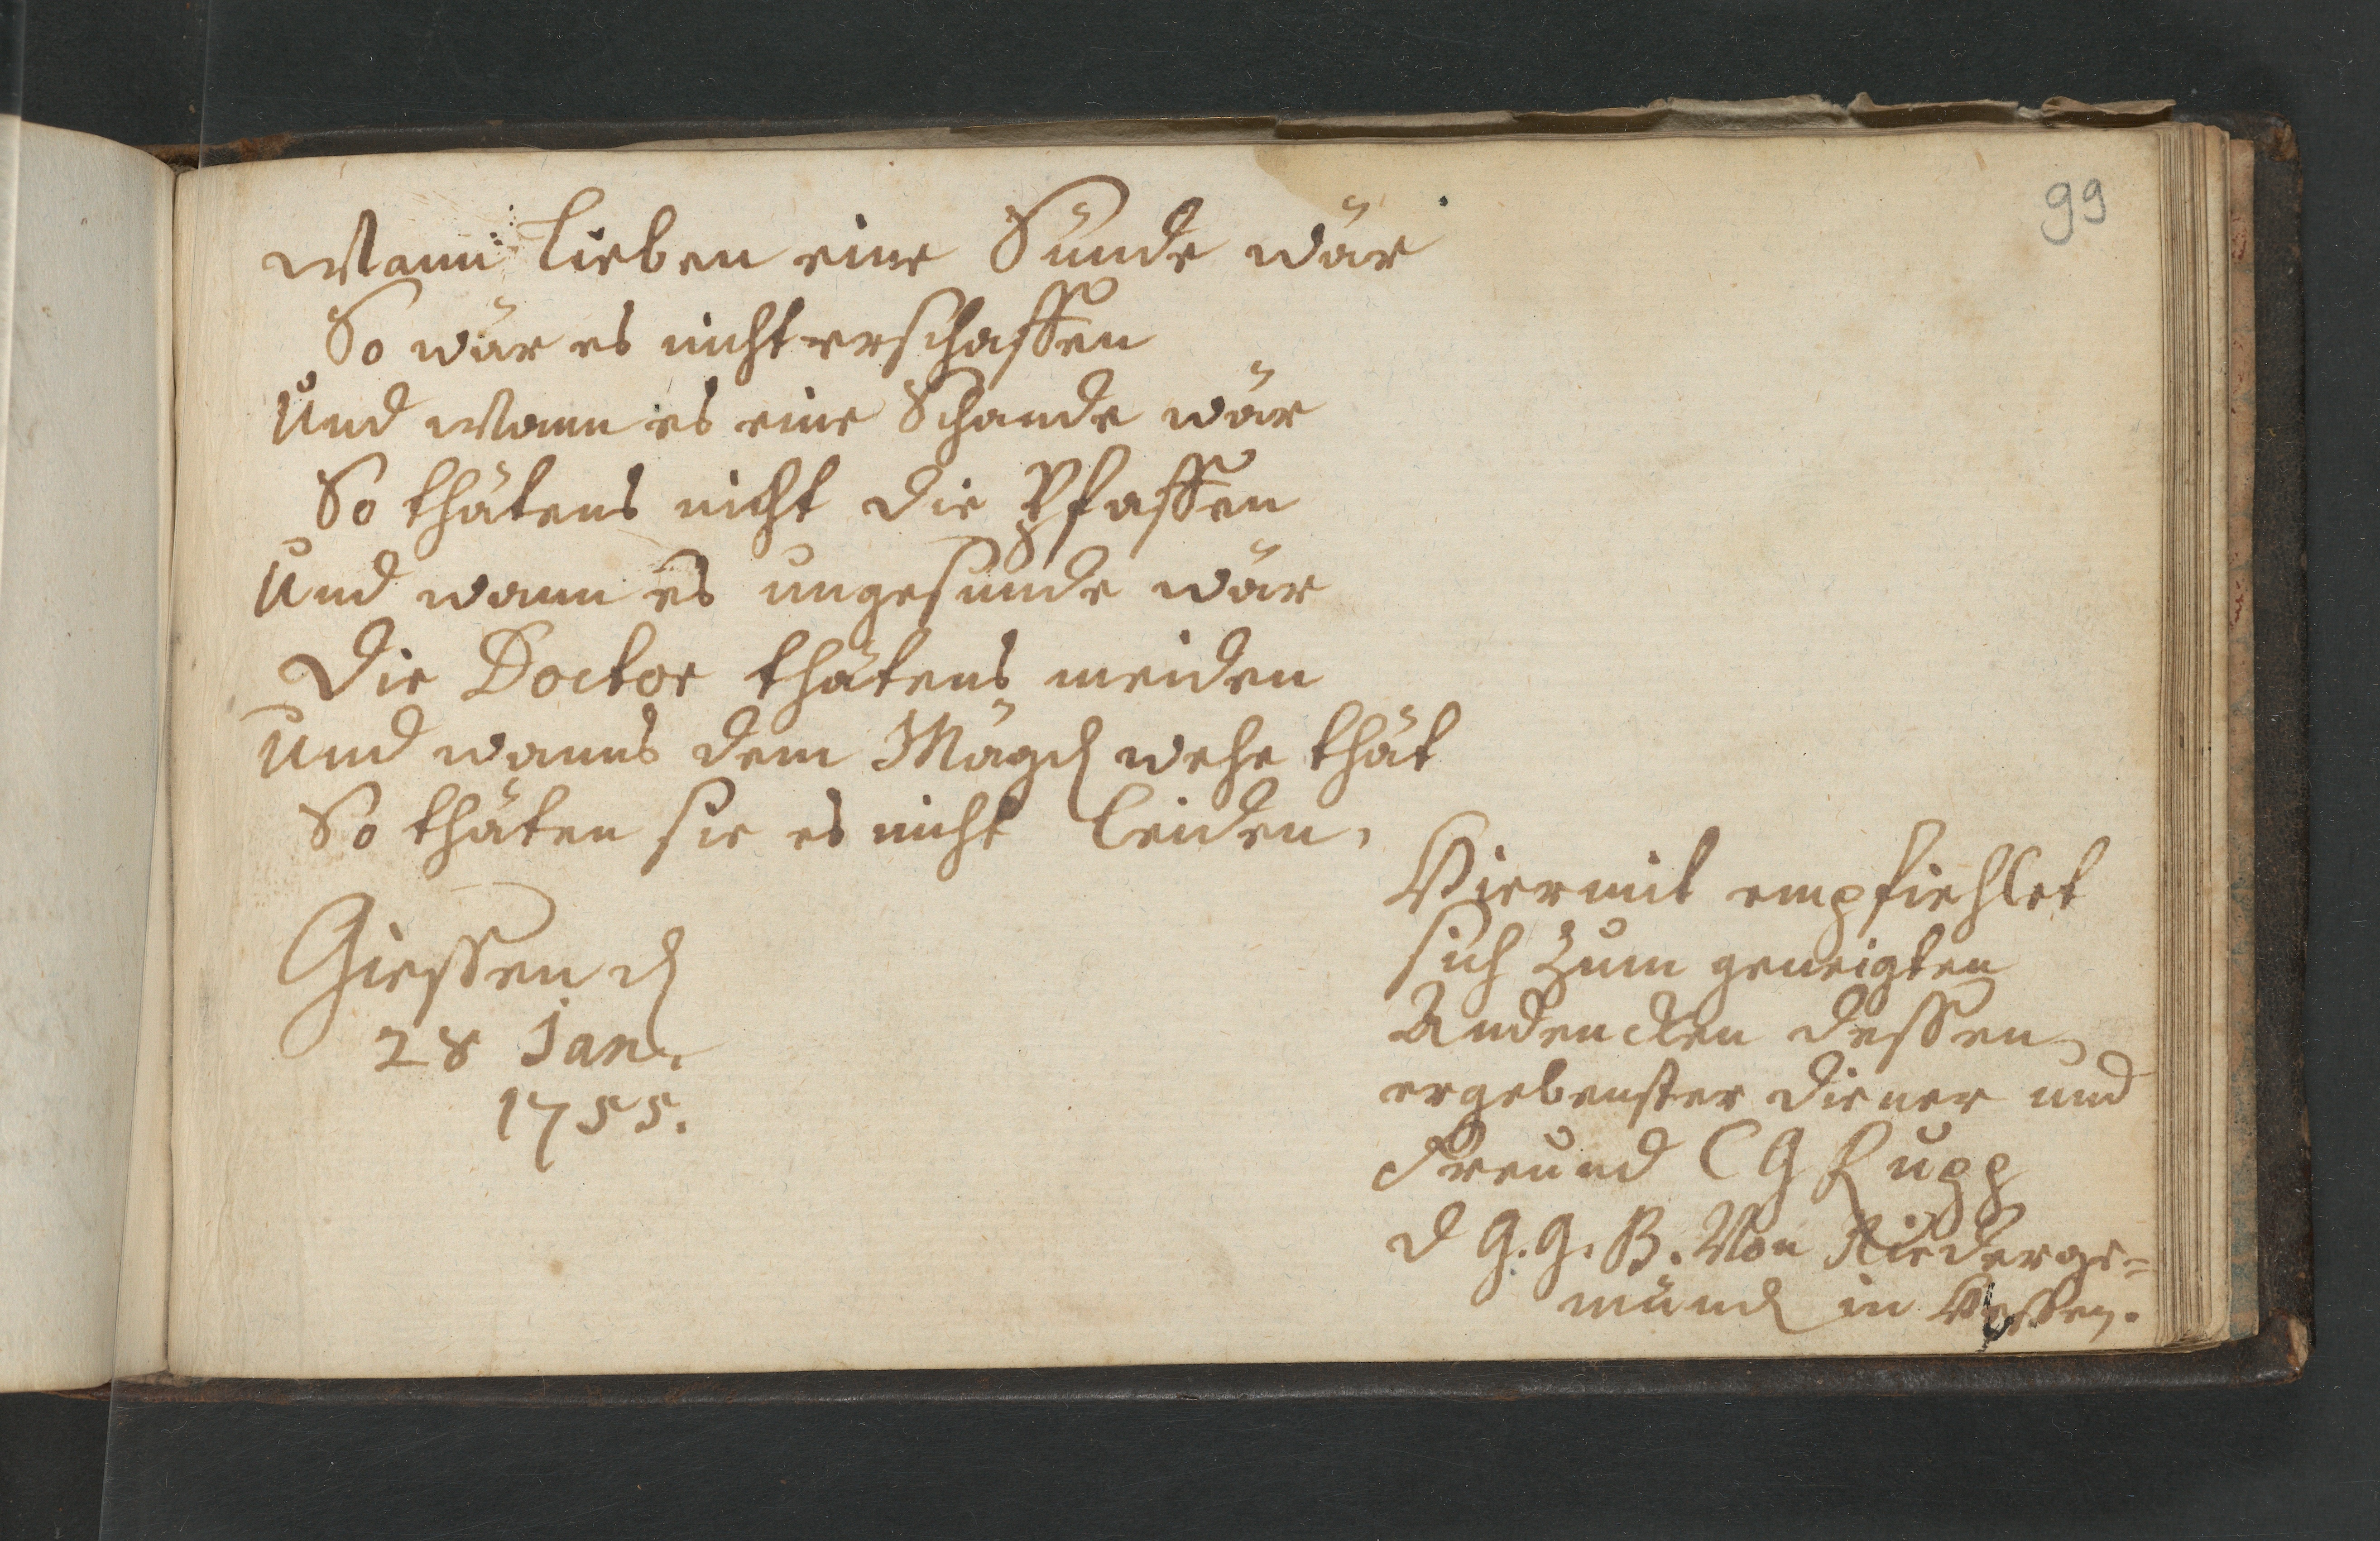 99
Wann Lieben eine Sünde wär
So wär es nicht erschaffen
Und wann es eine Schande wär
So thätens nicht die Pfaffen
Und wann es ungesunde wär
Die Doctor thätens meiden
Und wanns dem Mägd wehe thät
So thäten sie es nicht leiden.
Giessen d
28 Jan.
1755.
Hiermit empfiehlet
sich zum geneigten
Andencken dessen
ergebenster diener und
Freund C G Rupp
d G. G. B. Von Niederge=
münd in Hessen.